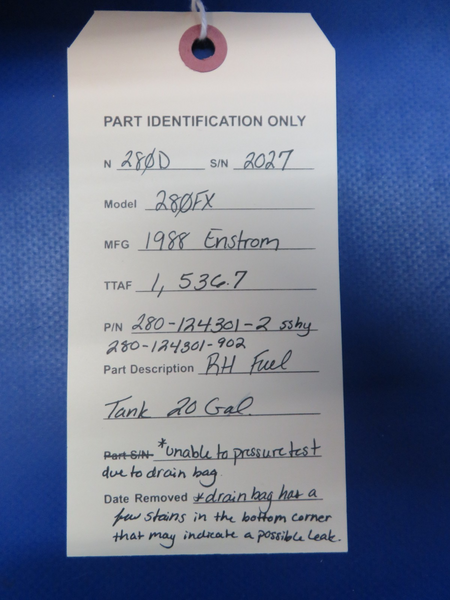 PART IDENTIFICATION ONLY
N 280D S/N 2027
Model 280FX
MFG 1988 Enstrom
TTAF 1,536.7
P/N 280-124301-2 ssby
280-124301-902
Part Description RH Fuel
Tank 20 Gal.
Part S/N *unable to pressure test
due to drain bag
Date Removed *drain bag has a
few stains in the bottom corner
that may indicate a possible leak.